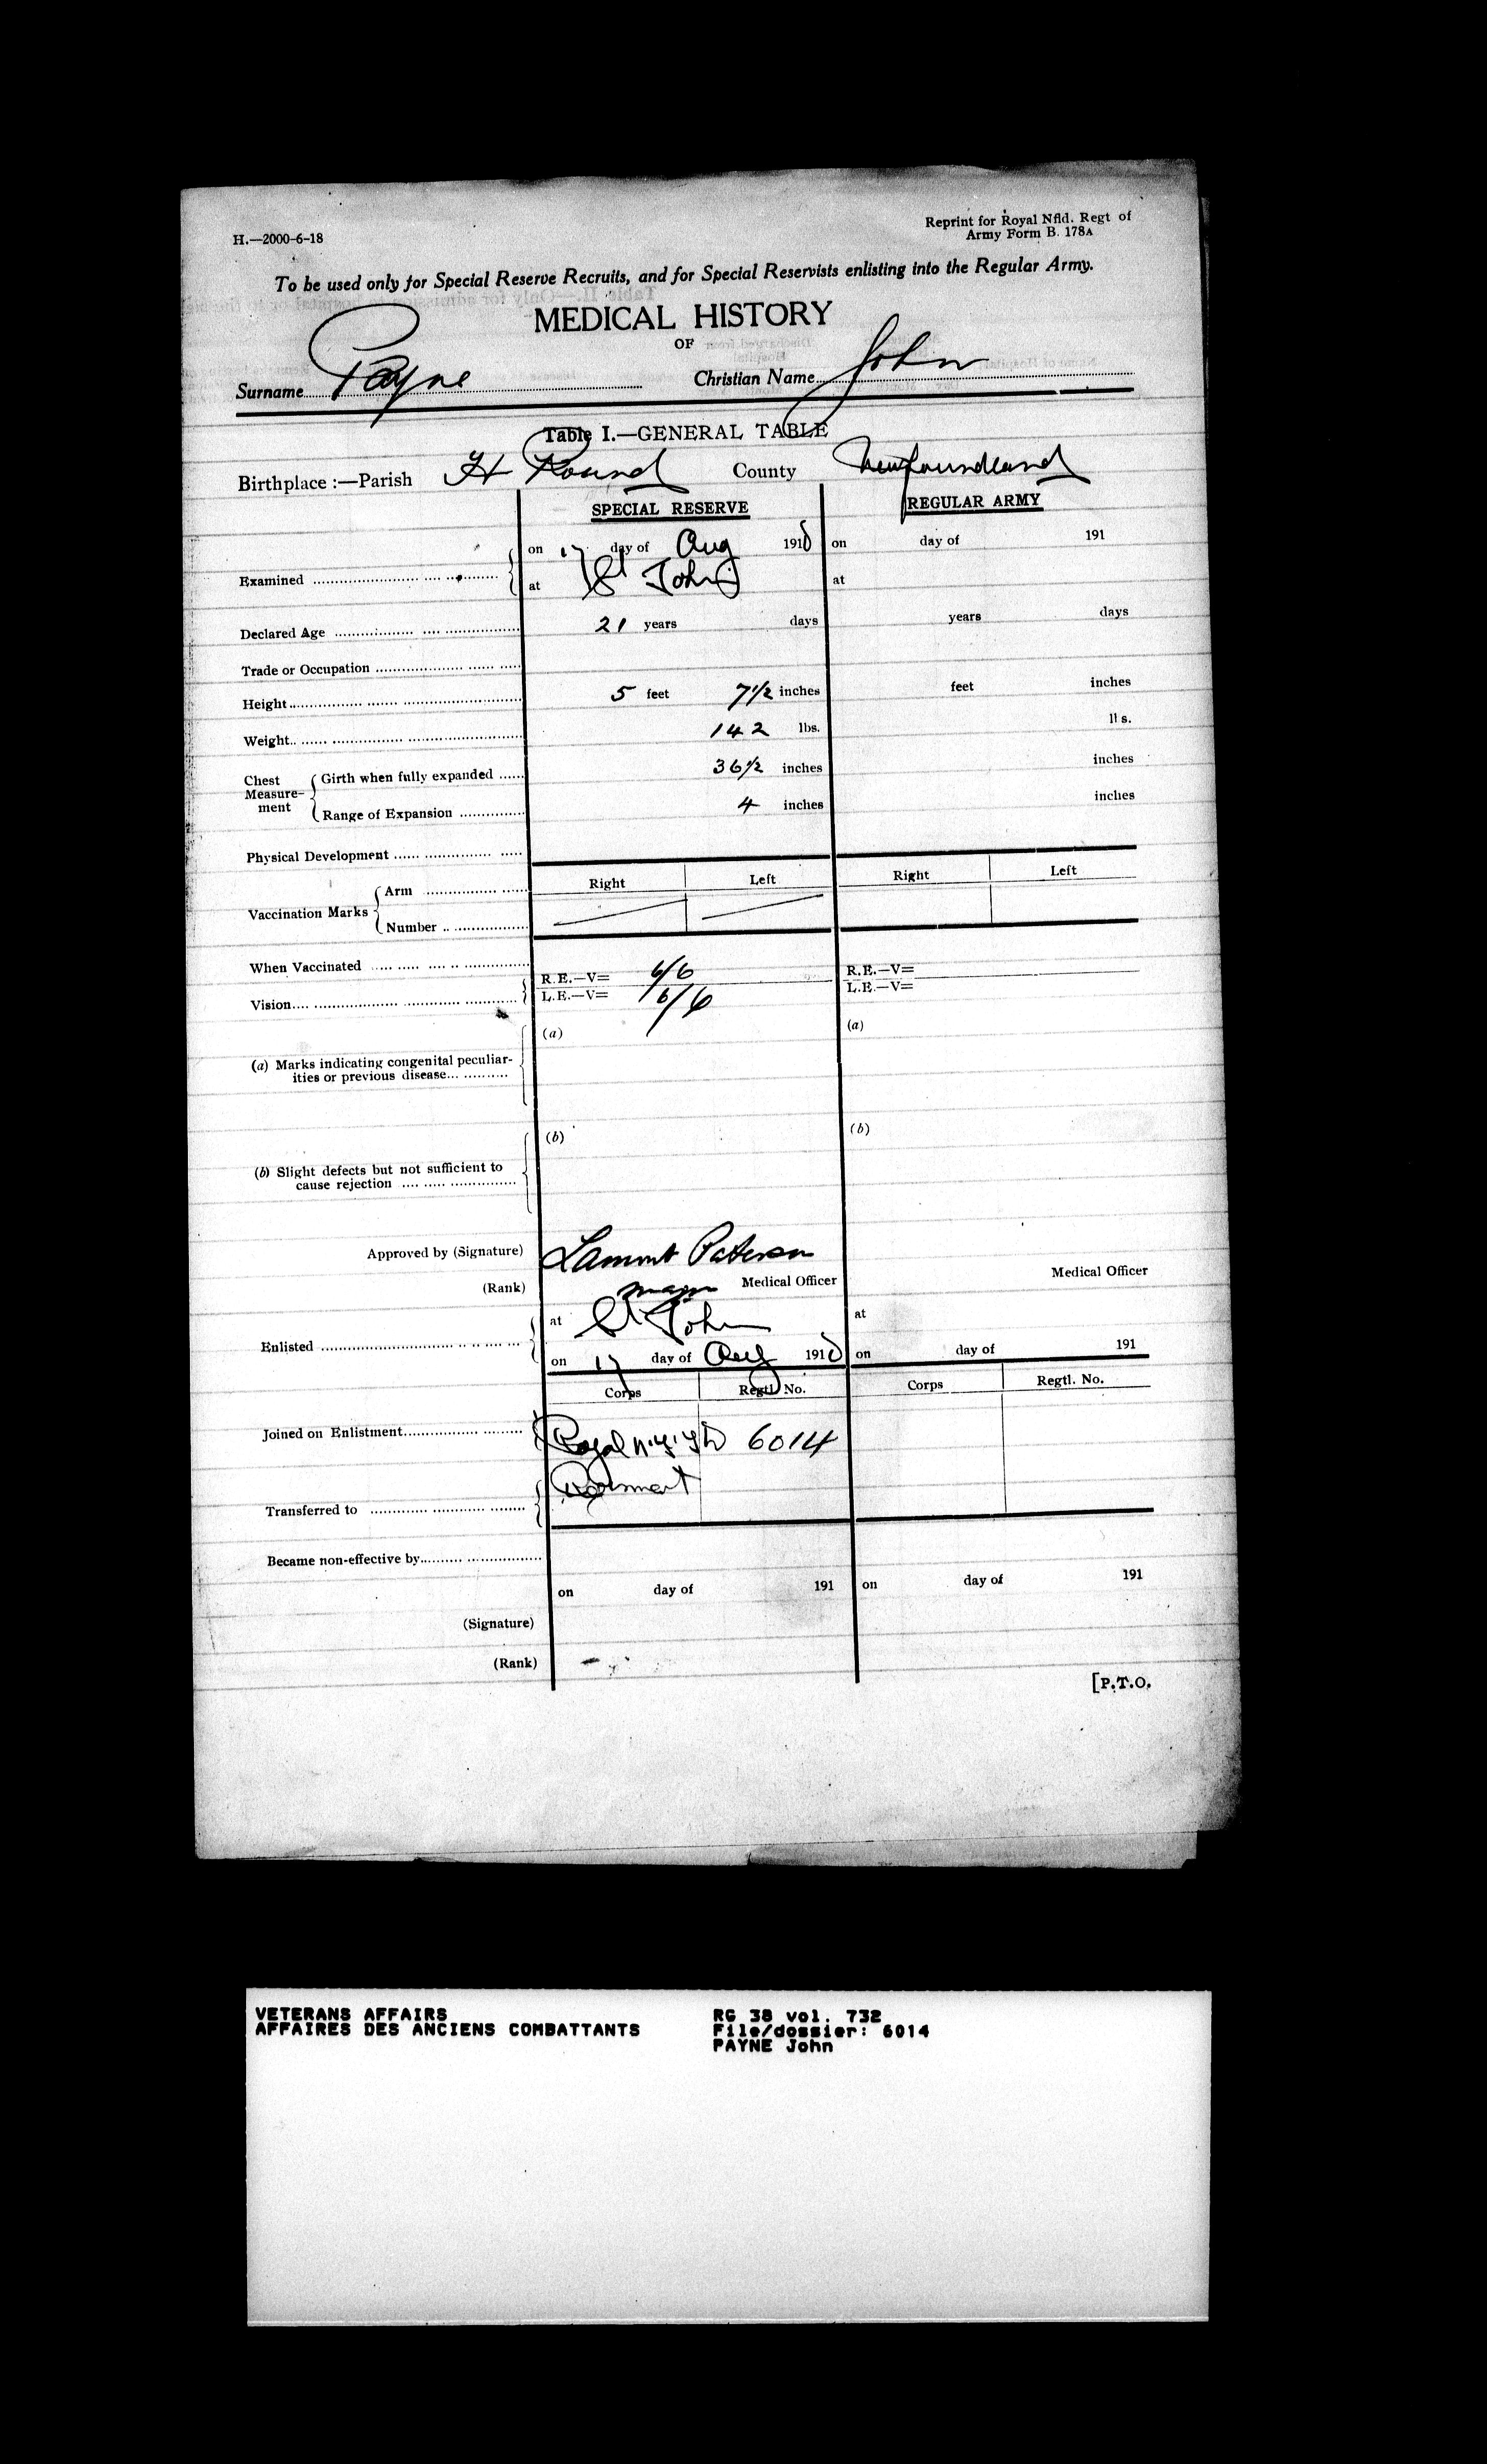 H.—2000-6-18
Reprint for Royal Nfld. Regt of
Army Form B. 178A
To be used only for Special Reserve Recruits, and for Special Reservists enlisting into the Regular Army.
MEDICAL HISTORY
OF
Surname Payne Christian Name John
Table I.—GENERAL TABLE
Birthplace :—Parish County Newfoundland
SPECIAL RESERVE REGULAR ARMY
Examined
on 17 day of Aug 1918 on day of 191
at St John's at
Declared Age 21 years days years days
Trade or Occupation
Height 5 feet 7 1/2 inches feet inches
Weight 142 lbs. lbs.
Chest Measure-ment
Girth when fully expanded 36 1/2 inches inches
Range of Expansion 4 inches inches
Physical Development
Right Left Right Left
Vaccination Marks
Arm
Number
When Vaccinated
Vision
R.E.—V= 6/6 R.E.—V=
L.E.—V= 6/6 L.E.—V=
(a) Marks indicating congenital peculiar-
ities or previous disease
(a) (a)
(b) Slight defects but not sufficient to
cause rejection
(b) (b)
Approved by (Signature) Lamont Paterson
(Rank) Major Medical Officer Medical Officer
Enlisted
at St John at
on 17 day of Aug 1918 on day of 191
Corps Regtl. No. Corps Regtl. No.
Joined on Enlistment Royal 6014
Transferred to
Became non-effective by
on day of 191 on day of 191
(Signature)
(Rank)
[P.T.O.
VETERANS AFFAIRS RG 38 vol. 732
AFFAIRES DES ANCIENS COMBATTANTS File/dossier: 6014
PAYNE John